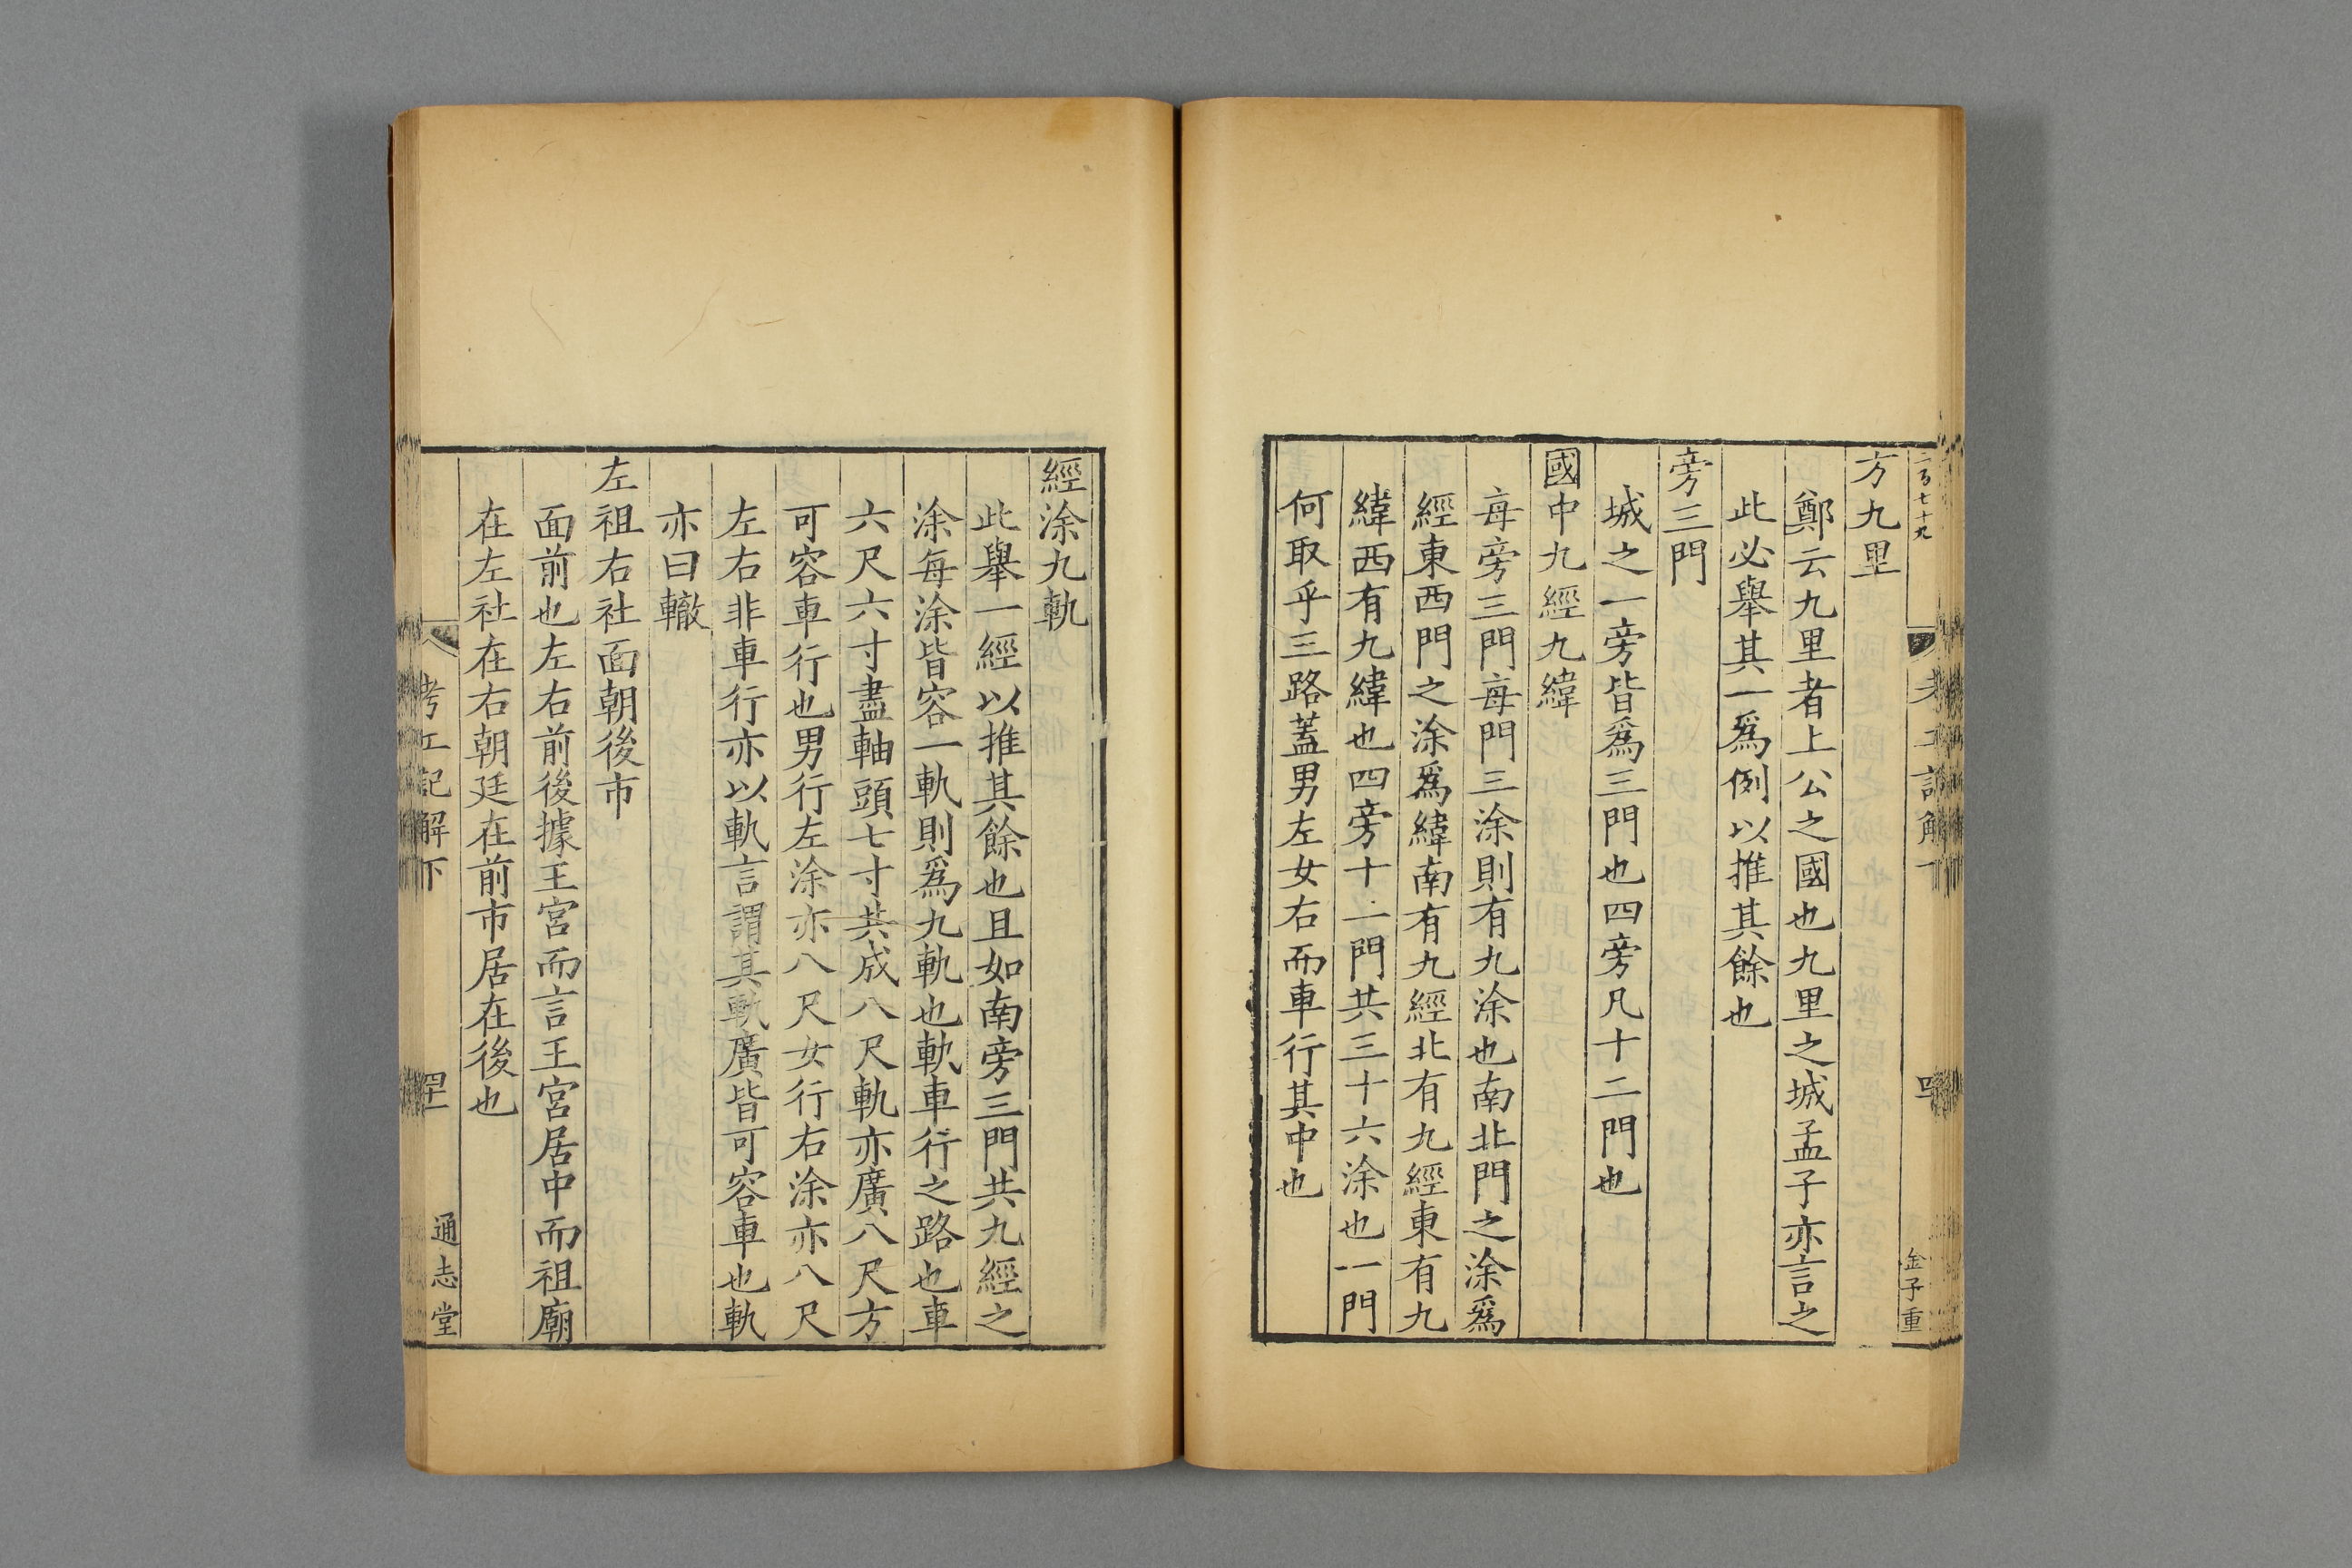 二百七十九
考工記解下
金子重
方九里
鄭云九里者上公之國也九里之城孟子亦言之
此必舉其一爲例以推其餘也
旁三門
城之一旁皆爲三門也四旁凡十二門也
國中九經九緯
每旁三門每門三涂則有九涂也南北門之涂爲
經東西門之涂爲緯南有九經北有九經東有九
緯西有九緯也四旁十二門共三十六涂也一門
何取乎三路蓋男左女右而車行其中也
經涂九軌
此舉一經以推其餘也且如南旁三門共九經之
涂每涂皆容一軌則爲九軌也軌車行之路也車
六尺六寸盡軸頭七寸共成八尺軌亦廣八尺方
可容車行也男行左涂亦八尺女行右涂亦八尺
左右非車行亦以軌言謂其軌廣皆可容車也軌
亦曰轍
左祖右社面朝後市
面前也左右前後據王宮而言王宮居中而祖廟
在左社在右朝廷在前市居在後也
考工記解下
通志堂